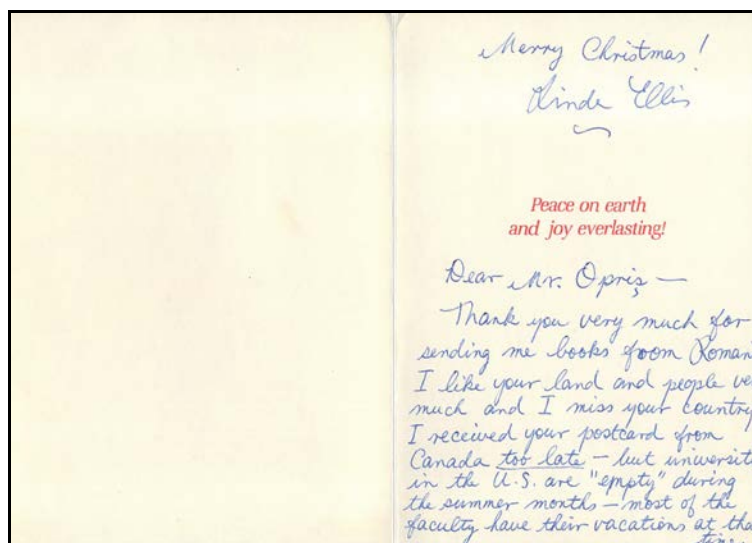 Merry Christmas!
Linda Ellis
Peace on earth
and joy everlasting!
Dear Mr. Opriş —
Thank you very much for
sending me books from Roman
I like your land and people ve
much and I miss your country
I received your postcard from
Canada too late — but universit
in the U.S. are "empty" during
the summer months — most of the
faculty have their vacations at tha
time.